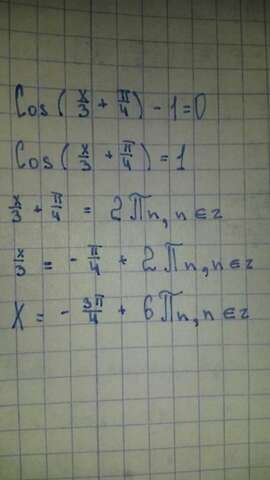 Cos(x/3 + π/4) - 1 = 0
Cos(x/3 + π/4) = 1
x/3 + π/4 = 2πn, n ∈ z
x/3 = - π/4 + 2πn, n ∈ z
X = - 3π/4 + 6πn, n ∈ z